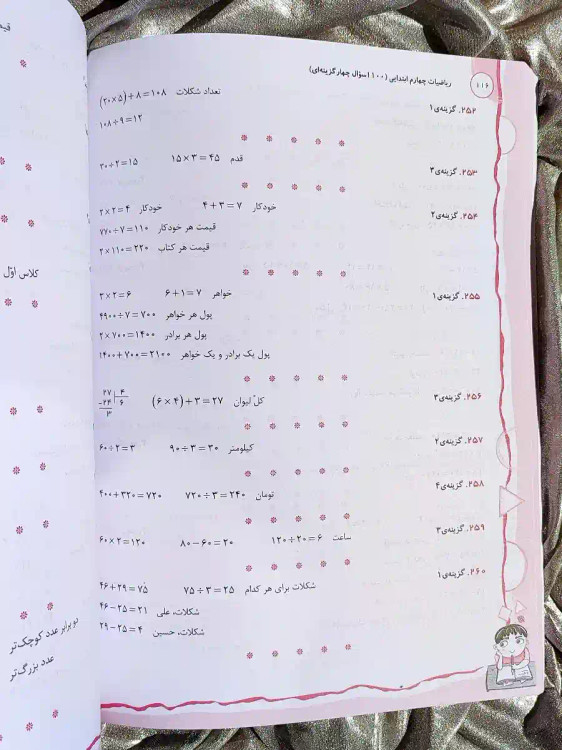 ۱۱۶
ریاضیات چهارم ابتدایی (۱۱۰۰ سؤال چهارگزینه‌ای)
۲۵۲. گزینه‌ی ۱
تعداد شکلات ۱۰۸=۸+(۲۰×۵)
۱۰۸÷۹=۱۲
۲۵۳. گزینه‌ی ۳
۳۰÷۲=۱۵ ۱۵×۳=۴۵ قدم
۲۵۴. گزینه‌ی ۲
۲×۲=۴ خودکار ۴+۳=۷ خودکار
۷۷۰÷۷=۱۱۰ قیمت هر خودکار
۲×۱۱۰=۲۲۰ قیمت هر کتاب
۲۵۵. گزینه‌ی ۱
۳×۲=۶ ۶+۱=۷ خواهر
۴۹۰۰÷۷=۷۰۰ پول هر خواهر
۲×۷۰۰=۱۴۰۰ پول هر برادر
۱۴۰۰+۷۰۰=۲۱۰۰ پول یک برادر و یک خواهر
۲۵۶. گزینه‌ی ۳
۲۷ ۴
-۲۴ ۶
۳
(۶×۴)+۳=۲۷ کلّ لیوان
۲۵۷. گزینه‌ی ۲
۶۰÷۲=۳ ۹۰÷۳=۳۰ کیلومتر
۲۵۸. گزینه‌ی ۴
۴۰۰+۳۲۰=۷۲۰ ۷۲۰÷۳=۲۴۰ تومان
۲۵۹. گزینه‌ی ۳
۶۰×۲=۱۲۰ ۸۰-۶۰=۲۰ ۱۲۰÷۲۰=۶ ساعت
۲۶۰. گزینه‌ی ۱
۴۶+۲۹=۷۵ ۷۵÷۳=۲۵ شکلات برای هر کدام
۴۶-۲۵=۲۱ شکلات، علی
۲۹-۲۵=۴ شکلات، حسین
کلاس اوّل
دو برابر عدد کوچک‌تر
عدد بزرگ‌تر